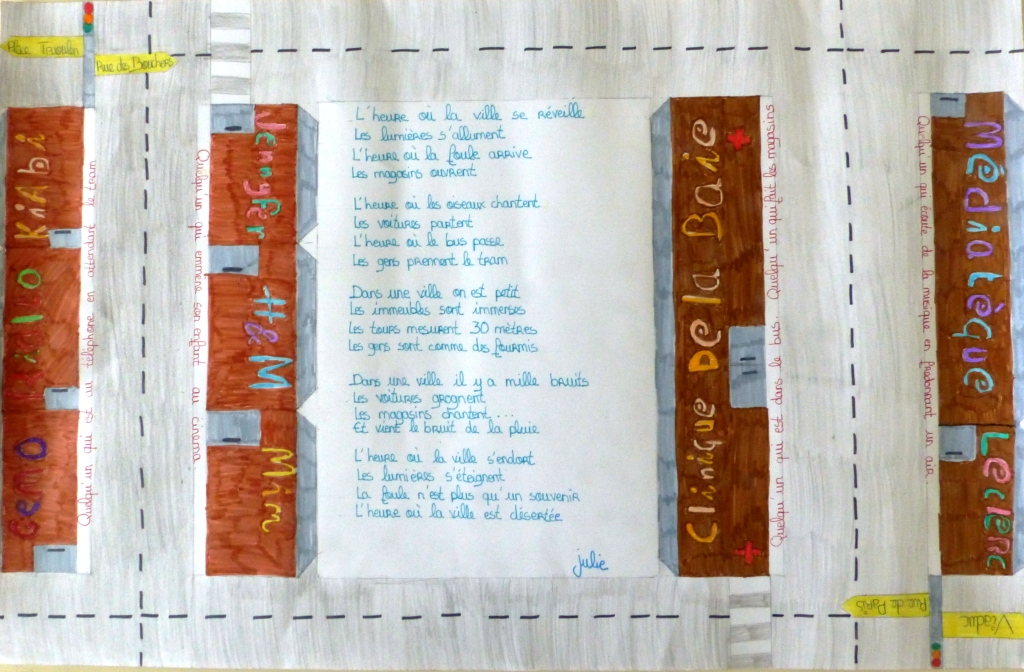 Rue des Bouchers
KiAbi
Celio
GEMO
Quelqu'un qui est au téléphone en attendant le tram
Quelqu'un qui emmene son enfant au cinema
Jennyfer
H&M
Mim
L'heure où la ville se réveille
Les lumières s'allument
L'heure où la foule arrive
Les magasins ouvrent
L'heure où les oiseaux chantent
Les voitures partent
L'heure où le bus passe
Les gens prennent le tram
Dans une ville on est petit
Les immeubles sont immenses
Les tours mesurent 30 mètres
Les gens sont comme des fourmis
Dans une ville il y a mille bruits
Les voitures grognent
Les magasins chantent ...
Et vient le bruit de la pluie
L'heure où la ville s'endort
Les lumières s'éteignent
La foule n'est plus qu'un souvenir
L'heure où la ville est désertée
julie
Clinique De la Baie
Quelqu'un qui est dans le bus. Quelqu'un qui fait les magasins
Quelqu'un qui écoute de la musique en fredonnant un air
Médiatèque
Leclerc
Rue de Paris
Viaduc